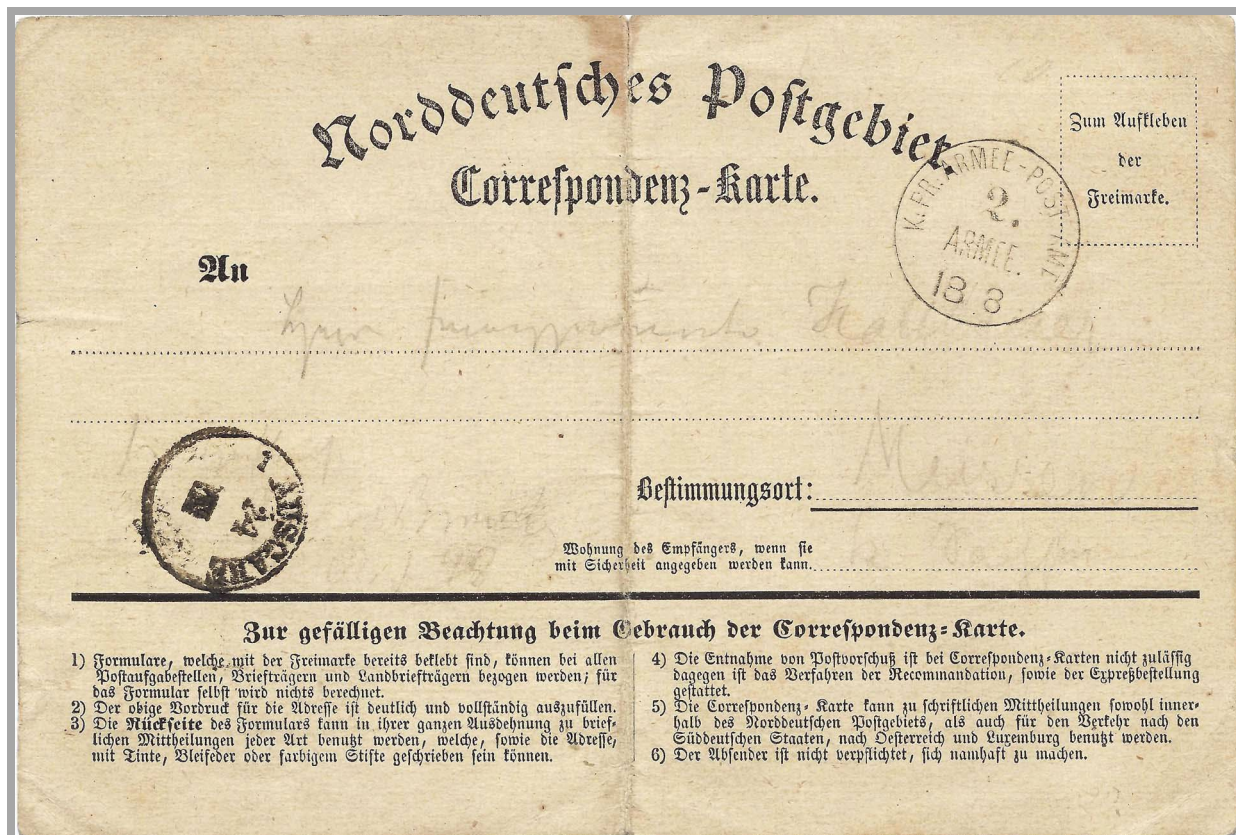 Norddeutsches Postgebiet
Correspondenz-Karte.
Zum Aufkleben
der
Freimarke.
K. PR. ARMEE-POST-AMT
2.
ARMEE.
18/8
An
Bestimmungsort:
AUSGABE
1
Wohnung des Empfängers, wenn sie
mit Sicherheit angegeben werden kann.
Zur gefälligen Beachtung beim Gebrauch der Correspondenz-Karte.
1) Formulare, welche mit der Freimarke bereits beklebt sind, können bei allen
Postaufgabestellen, Briefträgern und Landbriefträgern bezogen werden; für
das Formular selbst wird nichts berechnet.
2) Der obige Vordruck für die Adresse ist deutlich und vollständig auszufüllen.
3) Die Rückseite des Formulars kann in ihrer ganzen Ausdehnung zu brief-
lichen Mittheilungen jeder Art benutzt werden, welche, sowie die Adresse,
mit Tinte, Bleifeder oder farbigem Stifte geschrieben sein können.
4) Die Entnahme von Postvorschuß ist bei Correspondenz-Karten nicht zulässig
dagegen ist das Verfahren der Recommandation, sowie der Expreßbestellung
gestattet.
5) Die Correspondenz-Karte kann zu schriftlichen Mittheilungen sowohl inner-
halb des Norddeutschen Postgebiets, als auch für den Verkehr nach den
Süddeutschen Staaten, nach Oesterreich und Luxemburg benutzt werden.
6) Der Absender ist nicht verpflichtet, sich namhaft zu machen.